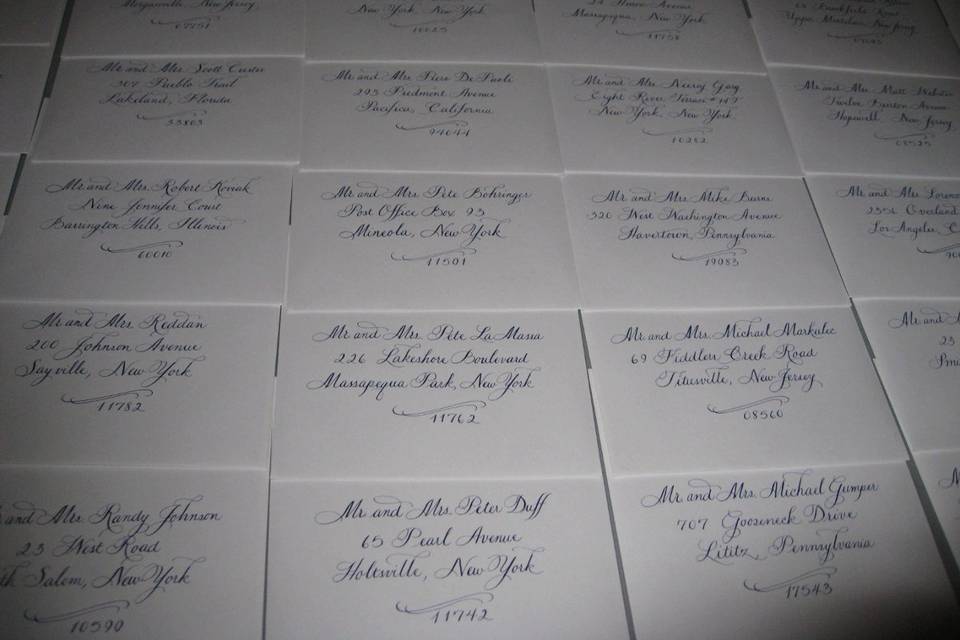 New Jersey
07751
New York, New York
Avenue
Massapequa, New York
11758
Road
New Jersey
Mr. and Mrs. Scott Custer
304 Pueblo Trail
Lakeland, Florida
33803
Mr. and Mrs. Piero De Paoli
295 Piedmont Avenue
Pacifica, California
94044
Mr. and Mrs. Avery Gary
Eight River Terrace
New York, New York
10282
Mr. and Mrs. Matt Webster
Twelve Avenue
Hopewell, New Jersey
08525
Mr. and Mrs. Robert Koviak
Nine Jennifer Court
Barrington Hills, Illinois
60010
Mr. and Mrs. Pete Bohringer
Post Office Box 93
Mineola, New York
11501
Mr. and Mrs. Mike Burns
320 West Washington Avenue
Havertown, Pennsylvania
19083
Mr. and Mrs. Lorenz
Overland
Los Angeles, C
Mr. and Mrs. Reddan
200 Johnson Avenue
Sayville, New York
11782
Mr. and Mrs. Pete La Massa
226 Lakeshore Boulevard
Massapequa Park, New York
11762
Mr. and Mrs. Michael Markulec
69 Fiddlers Creek Road
Titusville, New Jersey
08560
Mr. and
23
and Mrs. Randy Johnson
23 West Road
th Salem, New York
10590
Mr. and Mrs. Peter Duff
65 Pearl Avenue
Holtsville, New York
11742
Mr. and Mrs. Michael Gumper
707 Gooseneck Drive
Lititz, Pennsylvania
17543